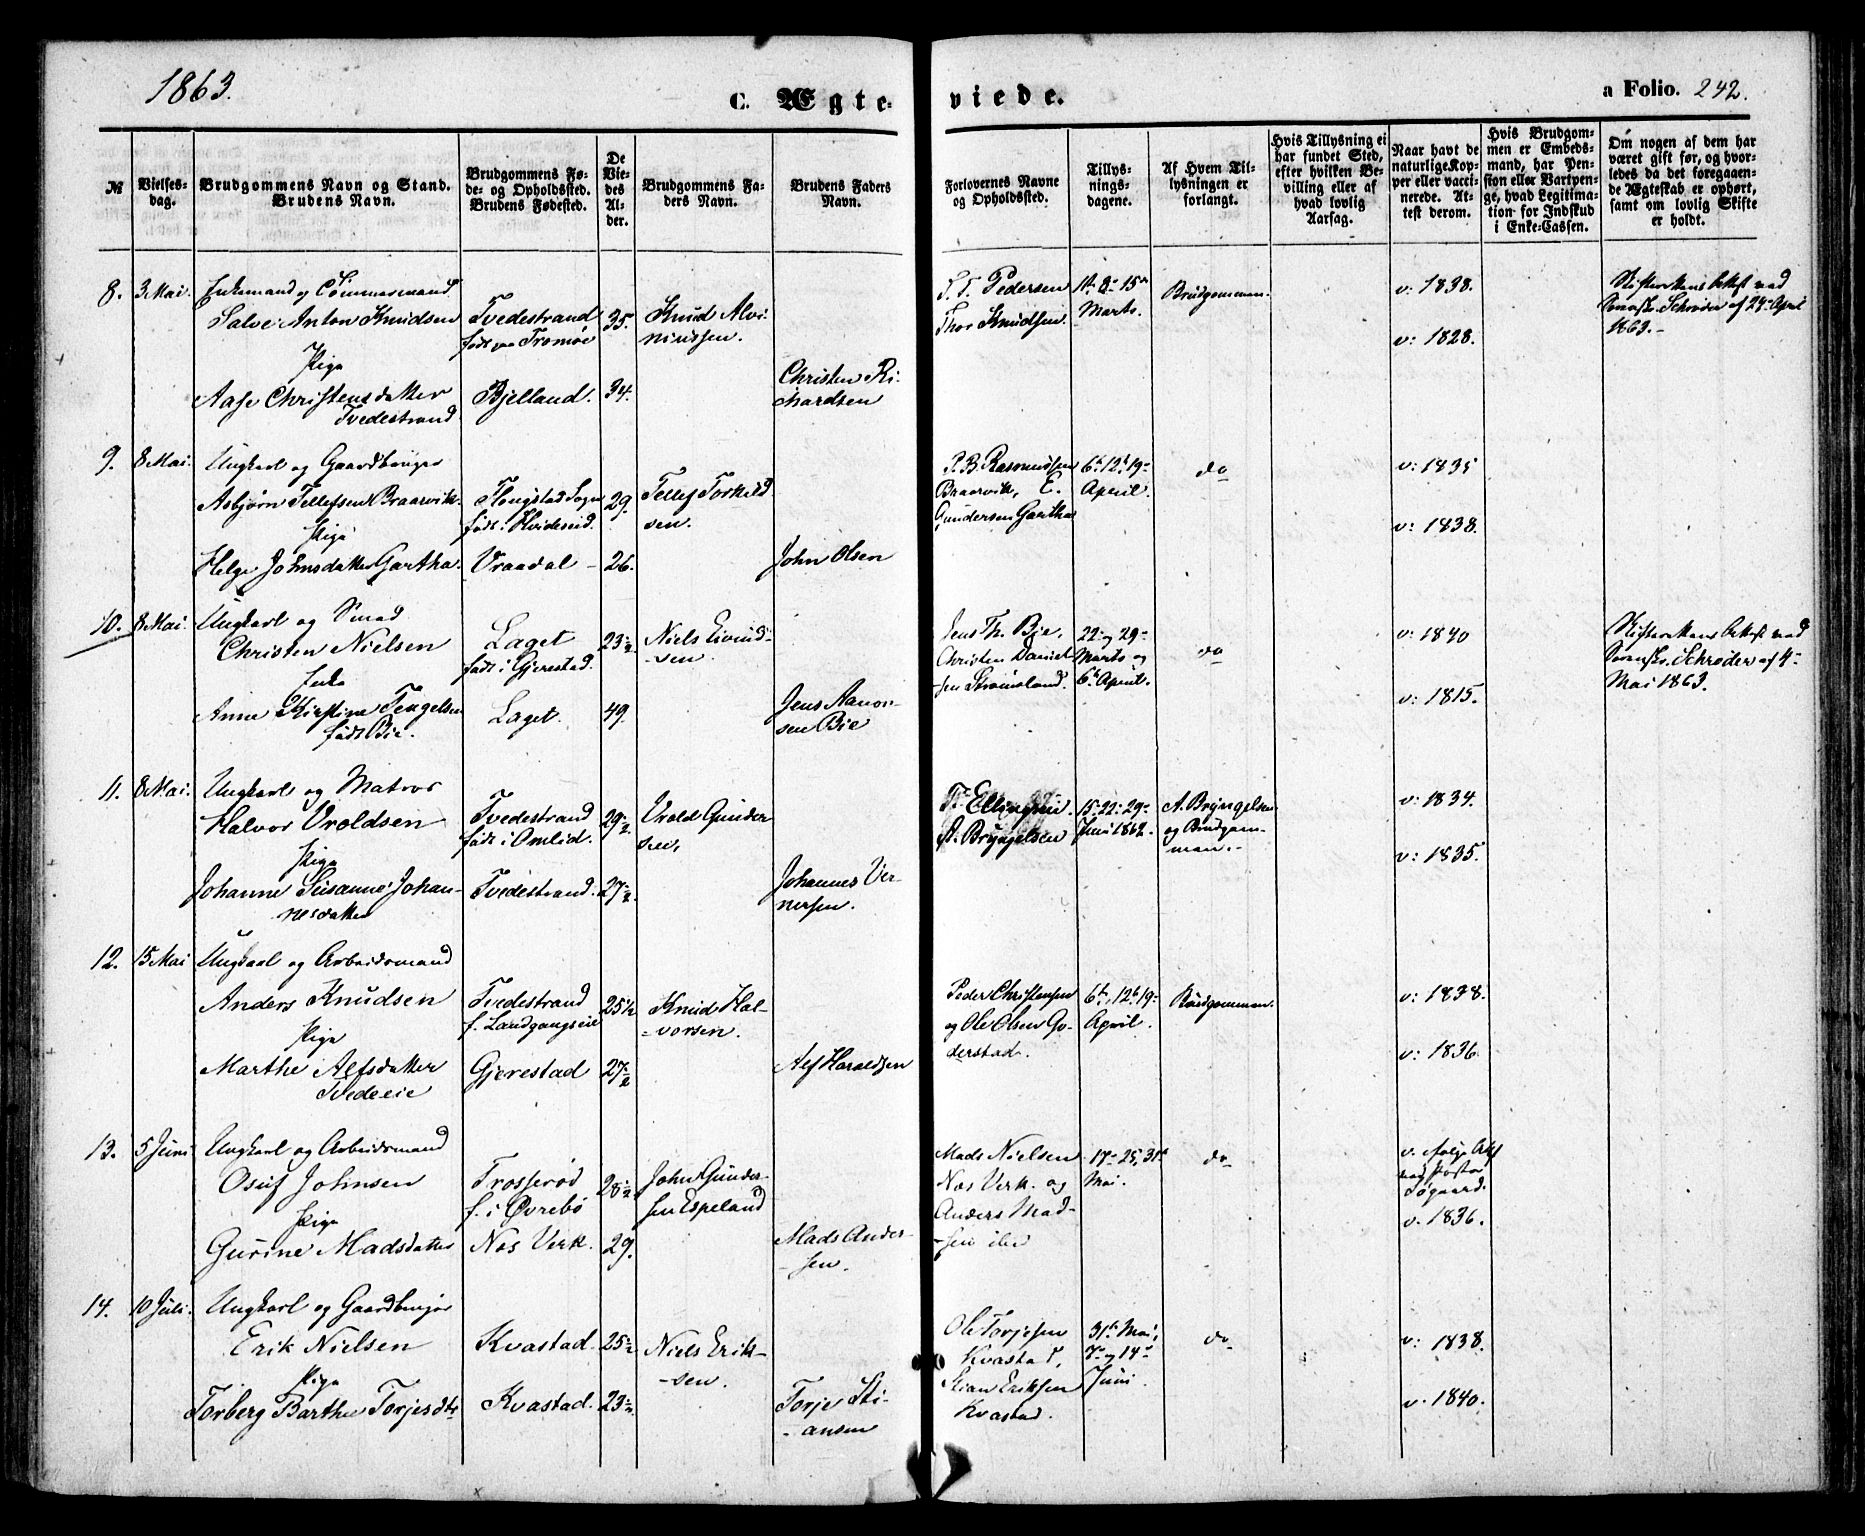 1863.
C. Ægte-
viede.
a Folio. 242.
№
Vielses-
dag.
Brudgommens Navn og Stand.
Brudens Navn.
Brudgommens Fø-
de- og Opholdssted.
Brudens Fødested.
De
Vie-
des
Al-
der.
Brudgommens Fa-
ders Navn.
Brudens Faders
Navn.
Forlovernes Navne
og Opholdssted.
Tillys-
nings-
dagene.
Af Hvem Til-
lysningen er
forlangt.
Hvis Tillysning ei
har fundet Sted,
efter hvilken Be-
villing eller af
hvad lovlig
Aarsag.
Naar havt de
naturlige Kop-
per eller vacci-
nerede. At-
test derom.
Hvis Brudgom-
men er Embeds-
mand, har Pen-
sion eller Vartpen-
ge, hvad Legitima-
tion for Indskud
i Enke-Cassen.
Om nogen af dem har
været gift før, og hvor-
ledes da det foregaaen-
de Ægteskab er ophørt,
samt om lovlig Skifte
er holdt.
8. 3 Mai. Enkemand og Tømmermand
Salve Anton Knudsen
Pige
Aase Christensdatter
Tvedestrand
Tvedestrand
født paa Tromøe
Bjelland.
35.
34.
Knud Alvi-
niussen.
Christen Ri-
chardsen
T. T. Pedersen
Thor Knudsen
1te 8de 15de
Marts.
Brudgommen.
v: 1838.
v: 1828.
Skifterettens Attest ved
Schrøder af 24de April
1863.-
9. 8 Mai. Ungkarl og Gaardbruger
Asbjørn Tellefsen Braarvik.
Pige
Helge Johnsdatter Gartha.
Sogn
født i Hvideseid.
Vraadal -
29.
26.
Tellef Torkild
sen.
John Olsen
P. B. Rasmussen
Braarvik, E.
Gundersen Gartha
6te 12te 19de
April.
do
v: 1835
v: 1838.
10. 8 Mai. Ungkarl og Smed
Christen Nielsen
Enke
Anne Kirstine Tengelsen
født Bie.
Laget
født i Gjerestad.
Laget.
23½
49.
Niels Eivind-
-sen.
Jens Aanon-
sen Bie
Jens Th. Bie,
Christen Daniel-
sen Strømsland.
22de og 29de
Marts og
6te April.
do
v: 1840
v: 1815.
Skifterettens Attest ved
Schrøder af 4de
Mai 1863.
11. 8 Mai. Ungkarl og Matros
Halvor Vroldsen
Pige
Johanne Susanne Johan-
nesdatter
Tvedestrand
født i Omlid.
Tvedestrand.
29½
27½
Vrold Gunder
sen.
Johannes Ver-
nersen.
A. Bryngelsen
15de 22de 29de
Juni 1862.
A. Bryngelsen
og Brudgom-
men.-
v: 1834.
v: 1835.
12. 15 Mai Ungkarl og Arbeidsmand
Anders Knudsen
Pige
Marthe Alfsdatter
Tvedeeie
Tvedestrand
f. Landgangseie
Gjerestad
25½
27½
Knud Hal-
-vorsen.
Alf Haraldsen
Peder Christensen
og Ole Olsen Go-
derstad.
6te, 12te 19de
April.
Brudgommen.
v: 1838.
v: 1836.
13. 5 Juni Ungkarl og Arbeidsmand
Osuf Johnsen
Pige
Gurine Madsdatter
Trosserød
f. i Øvrebø
Næs Verk.
28½
29.
John Gunder-
sen Espeland
Mads Ander-
-sen.
Mads Nielsen
Næs Verk. og
Anders Mad-
-sen
17de 25, 31te
Mai.
do
v. ifølge Att
Pastor
v. 1836.
14. 10 Juli. Ungkarl og Gaardbruger
Erik Nielsen
Pige
Torberg Barthe Torjesdtr
Kvastad.
Kvastad.
25½
23½
Niels Erik-
-sen.
Torje Sti-
-ansen
Ole Torjesen
Kvastad,
Stian Eriksen
Kvastad.
31te Mai,
7de og 14de
Juni
do
v: 1838.
v. 1840.